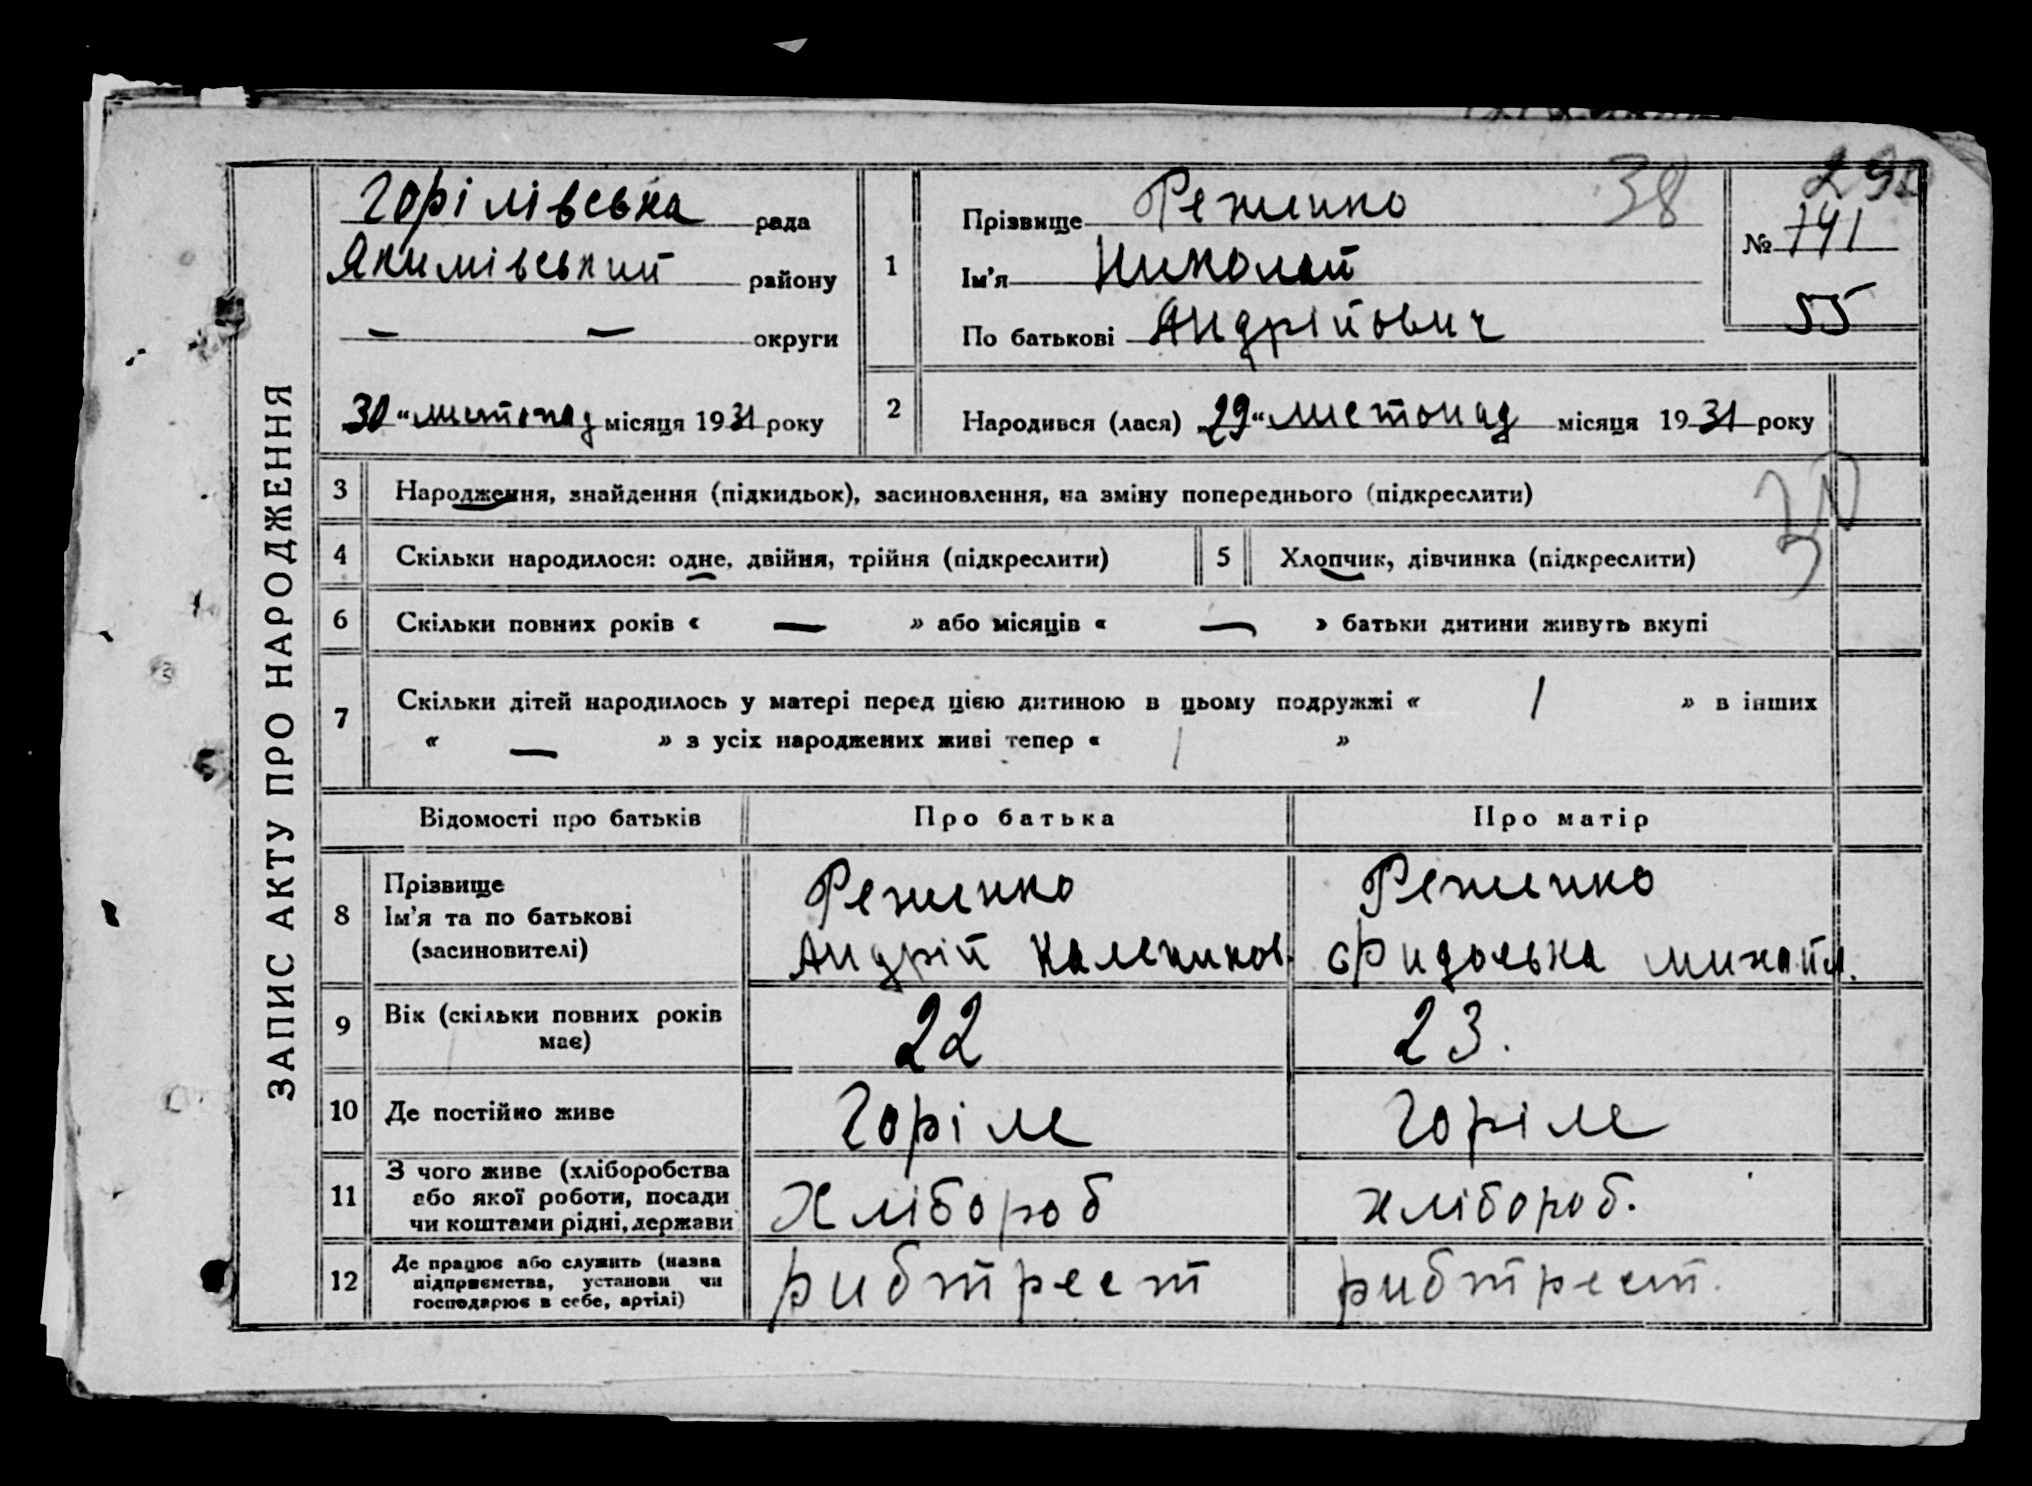 ЗАПИС АКТУ ПРО НАРОДЖЕННЯ
Горілівська рада
Якимівський району
— — округи
30 " листопад місяця 1931 року
1
Прізвище Реженко 38
Ім'я Николай
По батькові Андрійович
№ 741
55
2
Народився (лася) „29" листопад місяця 1931 року
3 Народження, знайдення (підкидьок), засиновлення, на зміну попереднього (підкреслити)
30
4 Скільки народилося: одне, двійня, трійня (підкреслити) 5 Хлопчик, дівчинка (підкреслити)
6 Скільки повних років « — » або місяців « — » батьки дитини живуть вкупі
7 Скільки дітей народилось у матері перед цією дитиною в цьому подружжі « 1 » в інших
« — » з усіх народжених живі тепер « 1 »
Відомості про батьків Про батька Про матір
8 Прізвище Реженко Реженко
Ім'я та по батькові
(засиновителі) Андрій михайл.
9 Вік (скільки повних років 22 23.
має)
10 Де постійно живе Горіле Горіле
11 З чого живе (хліборобства
або якої роботи, посади Хлібороб хлібороб.
чи коштами рідні, держави
12 Де працює або служить (назва
підприємства, установи чи рибтрест рибтрест.
господарює в себе, артілі)